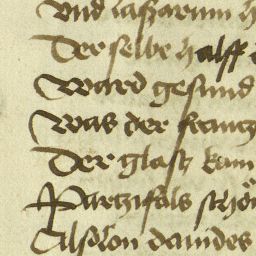 vnd laszarum h
Der selbe halff
Ward gesund
Was der frantz
Der glast kam
Partzifals schö
Absolon dauides